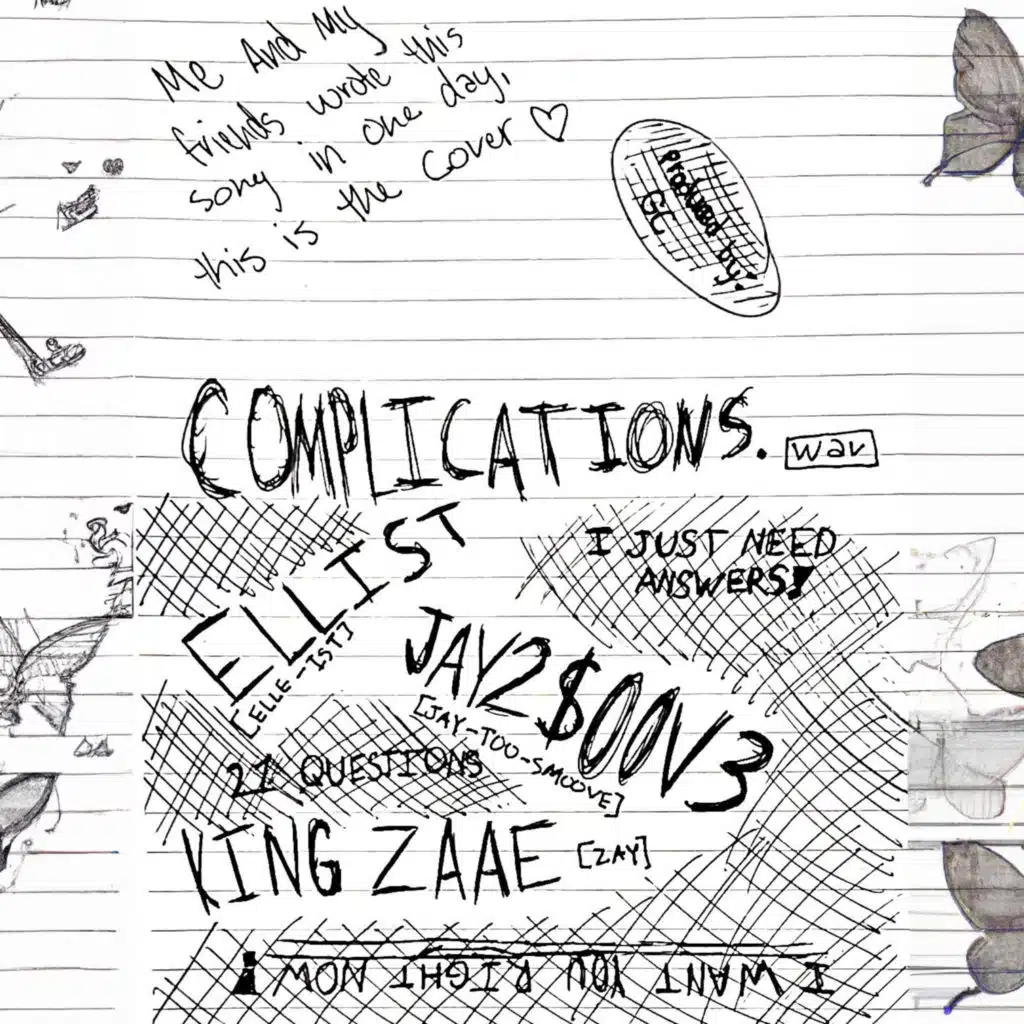 Me And My
friends wrote this
song in one day,
this is the cover ♡
produced by:
GC
COMPLICATIONS.
wav
ELLIST
[ELLE-IST]
I JUST NEED
ANSWERS!
JAY2$00V3
[JAY-TOO-SMOOVE]
21 QUESTIONS
KING ZAAE [ZAY]
I WANT YOU RIGHT NOW!